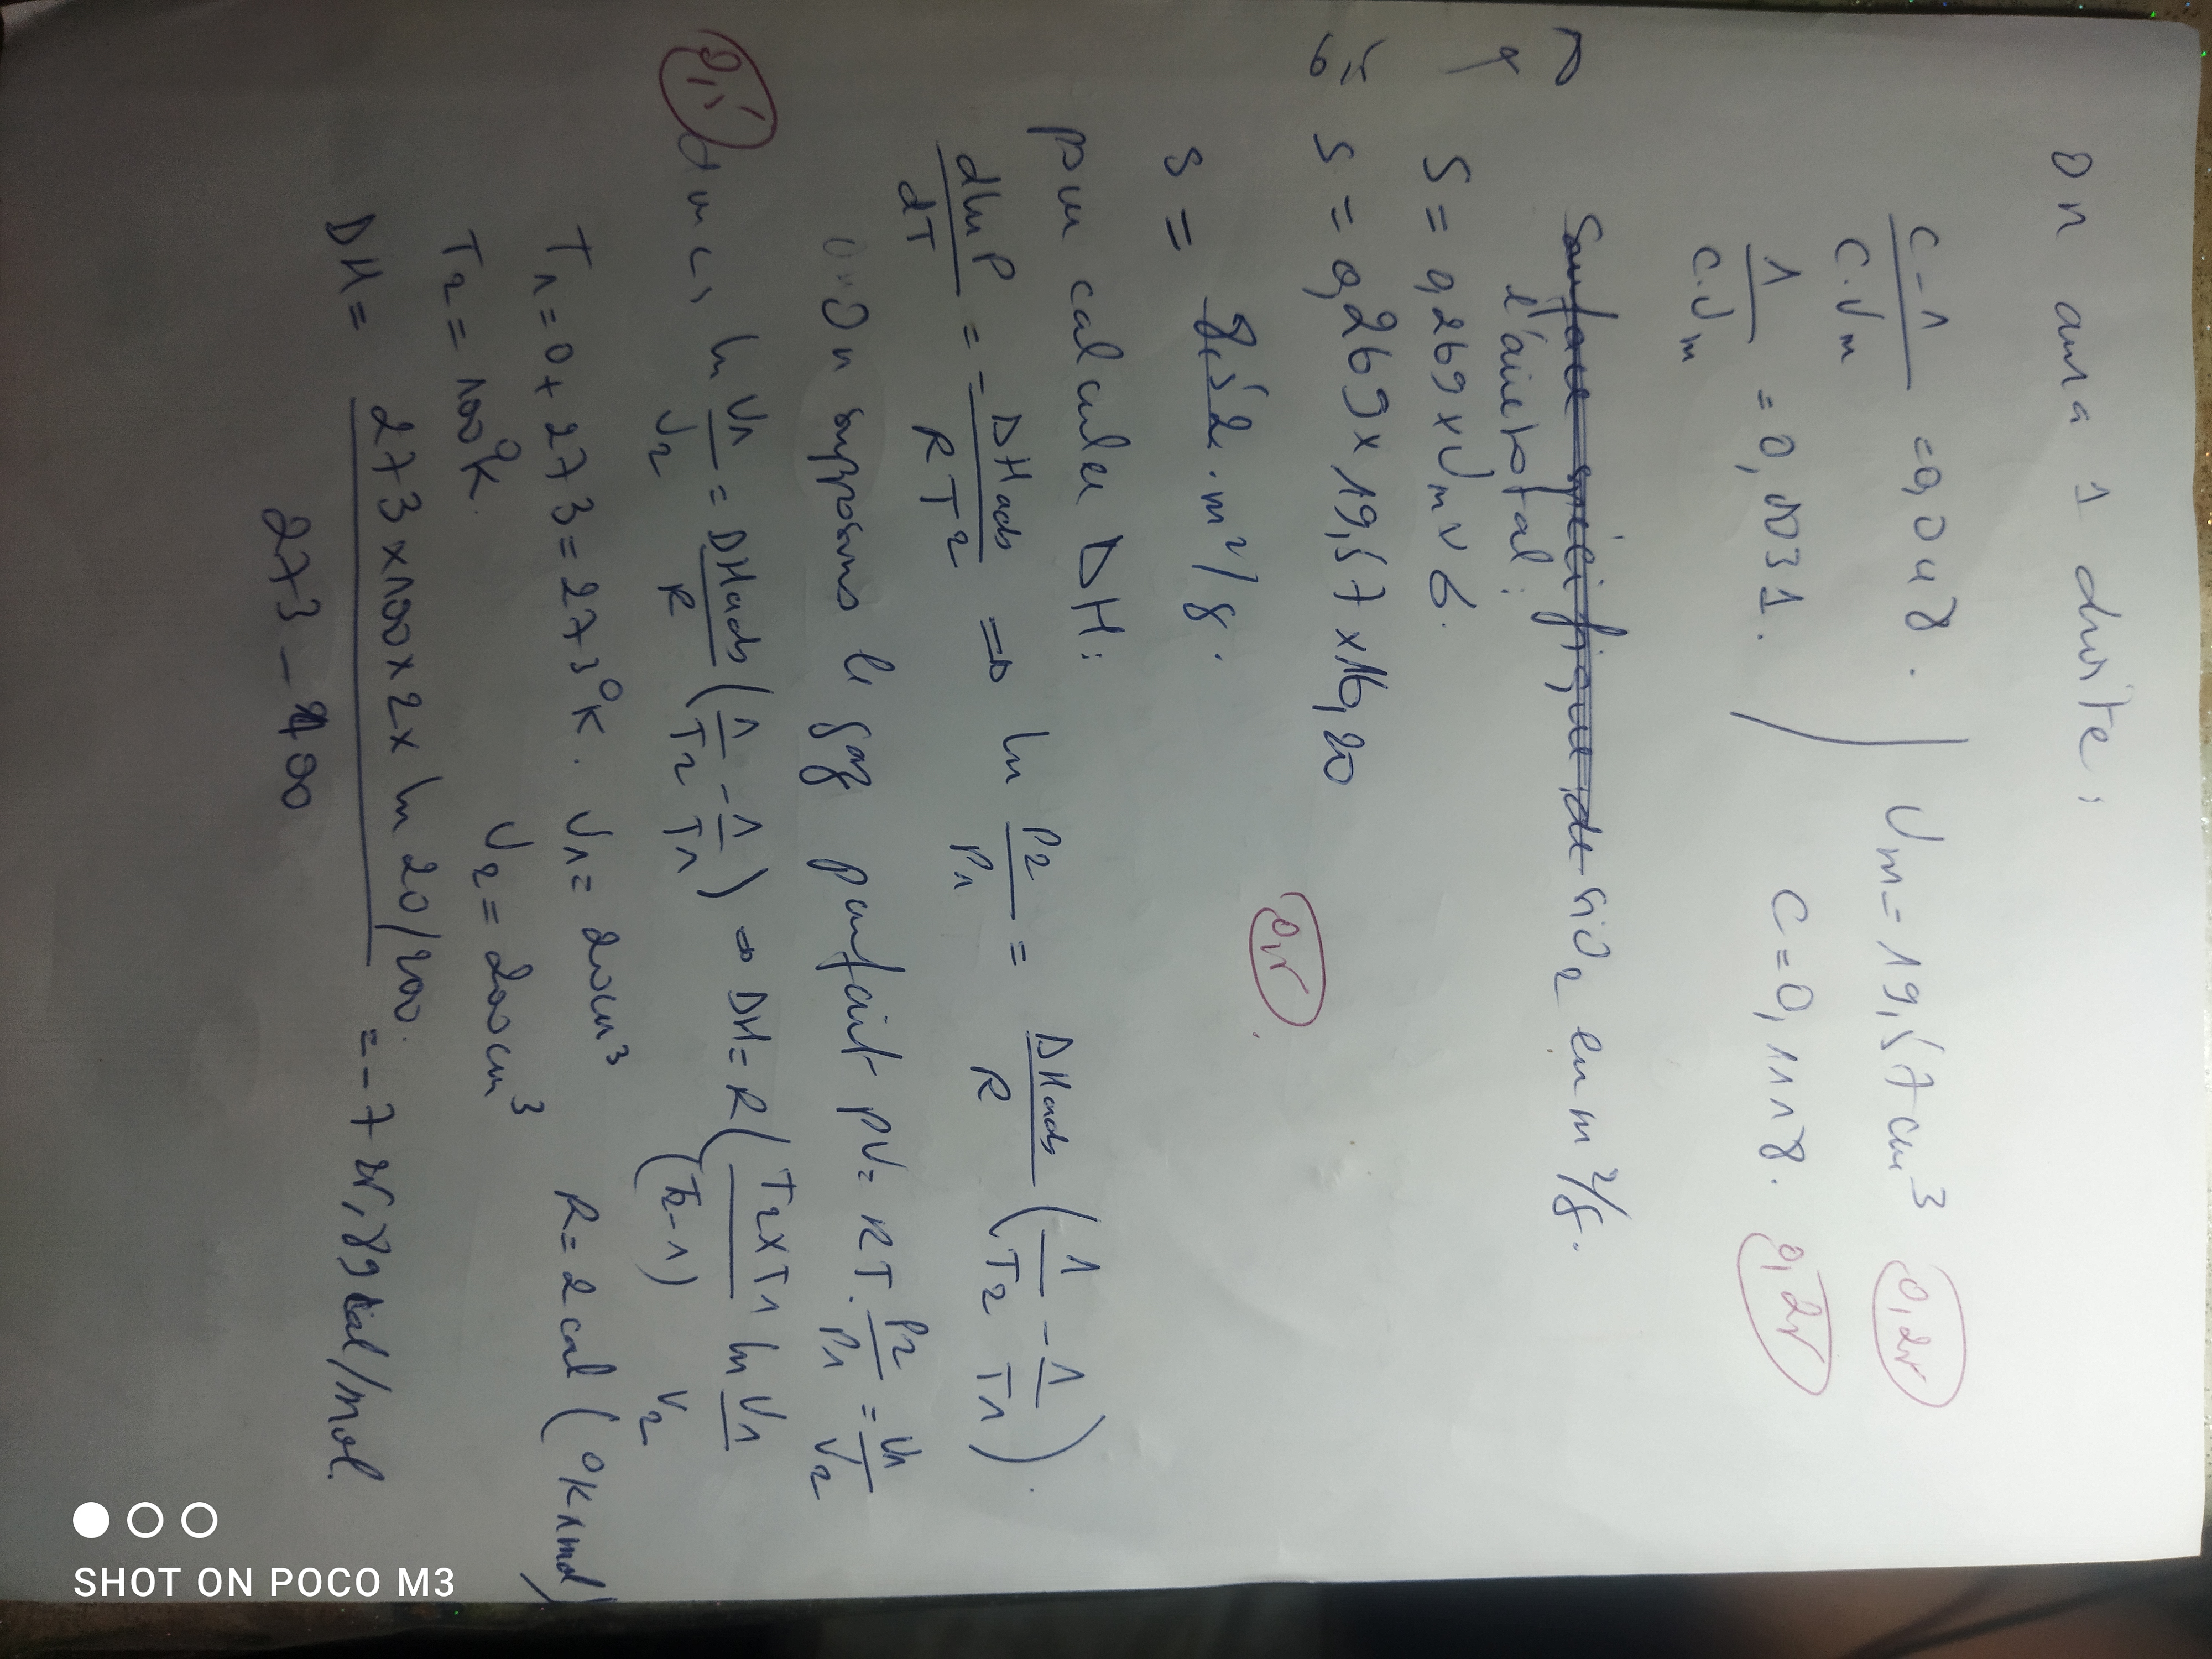 On aura 1 droite :
C-1/C.Vm = 0,048. } Vm = 19,57 cm³ (0,25)
1/C.Vm = 0,0031. } C = 0,1118. (0,25)
Surface spécifique de SiO2 en m²/g.
l'aire total :
S = 0,269 x Vm x 6.
S = 0,269 x 19,57 x 16,20
S = 85,2 . m²/g. (0,5)
pour calculer DH :
dlnP/dT = - DHads/RT² => ln P2/P1 = DHads/R (1/T2 - 1/T1).
On supposons le gaz parfait PV = RT. P2/P1 = V1/V2
donc, ln V1/V2 = DHads/R (1/T2 - 1/T1) => DH = R (T2xT1/(T2-1) ln V1/V2
T1 = 0 + 273 = 273°K. V1 = 20cm³ R = 2 cal (°K mol)
T2 = 100°K. V2 = 200cm³
DH = 273 x 100 x 2 x ln 20/200. / 273 - 100 = -7 cal/mol.
SHOT ON POCO M3